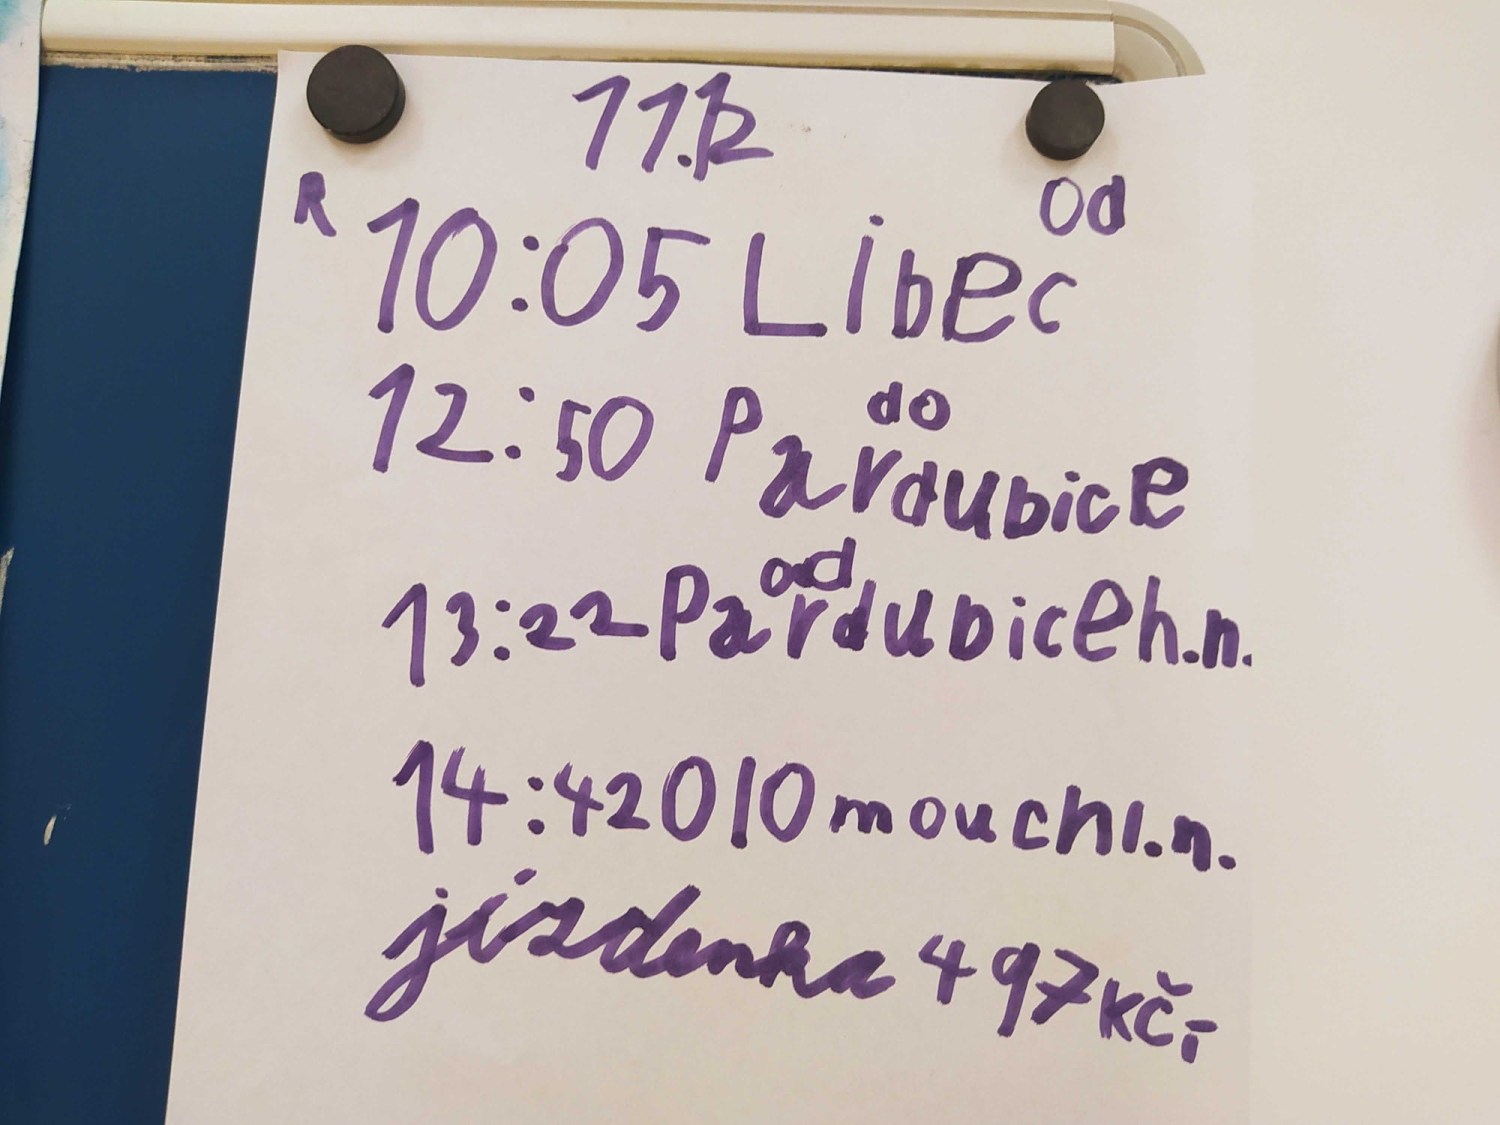 11.12
R od
10:05 Libec
12:50 do Pardubice
13:22 od Pardubice h.n.
14:42 Olomouc hl.n.
jízdenka 497 Kč,-